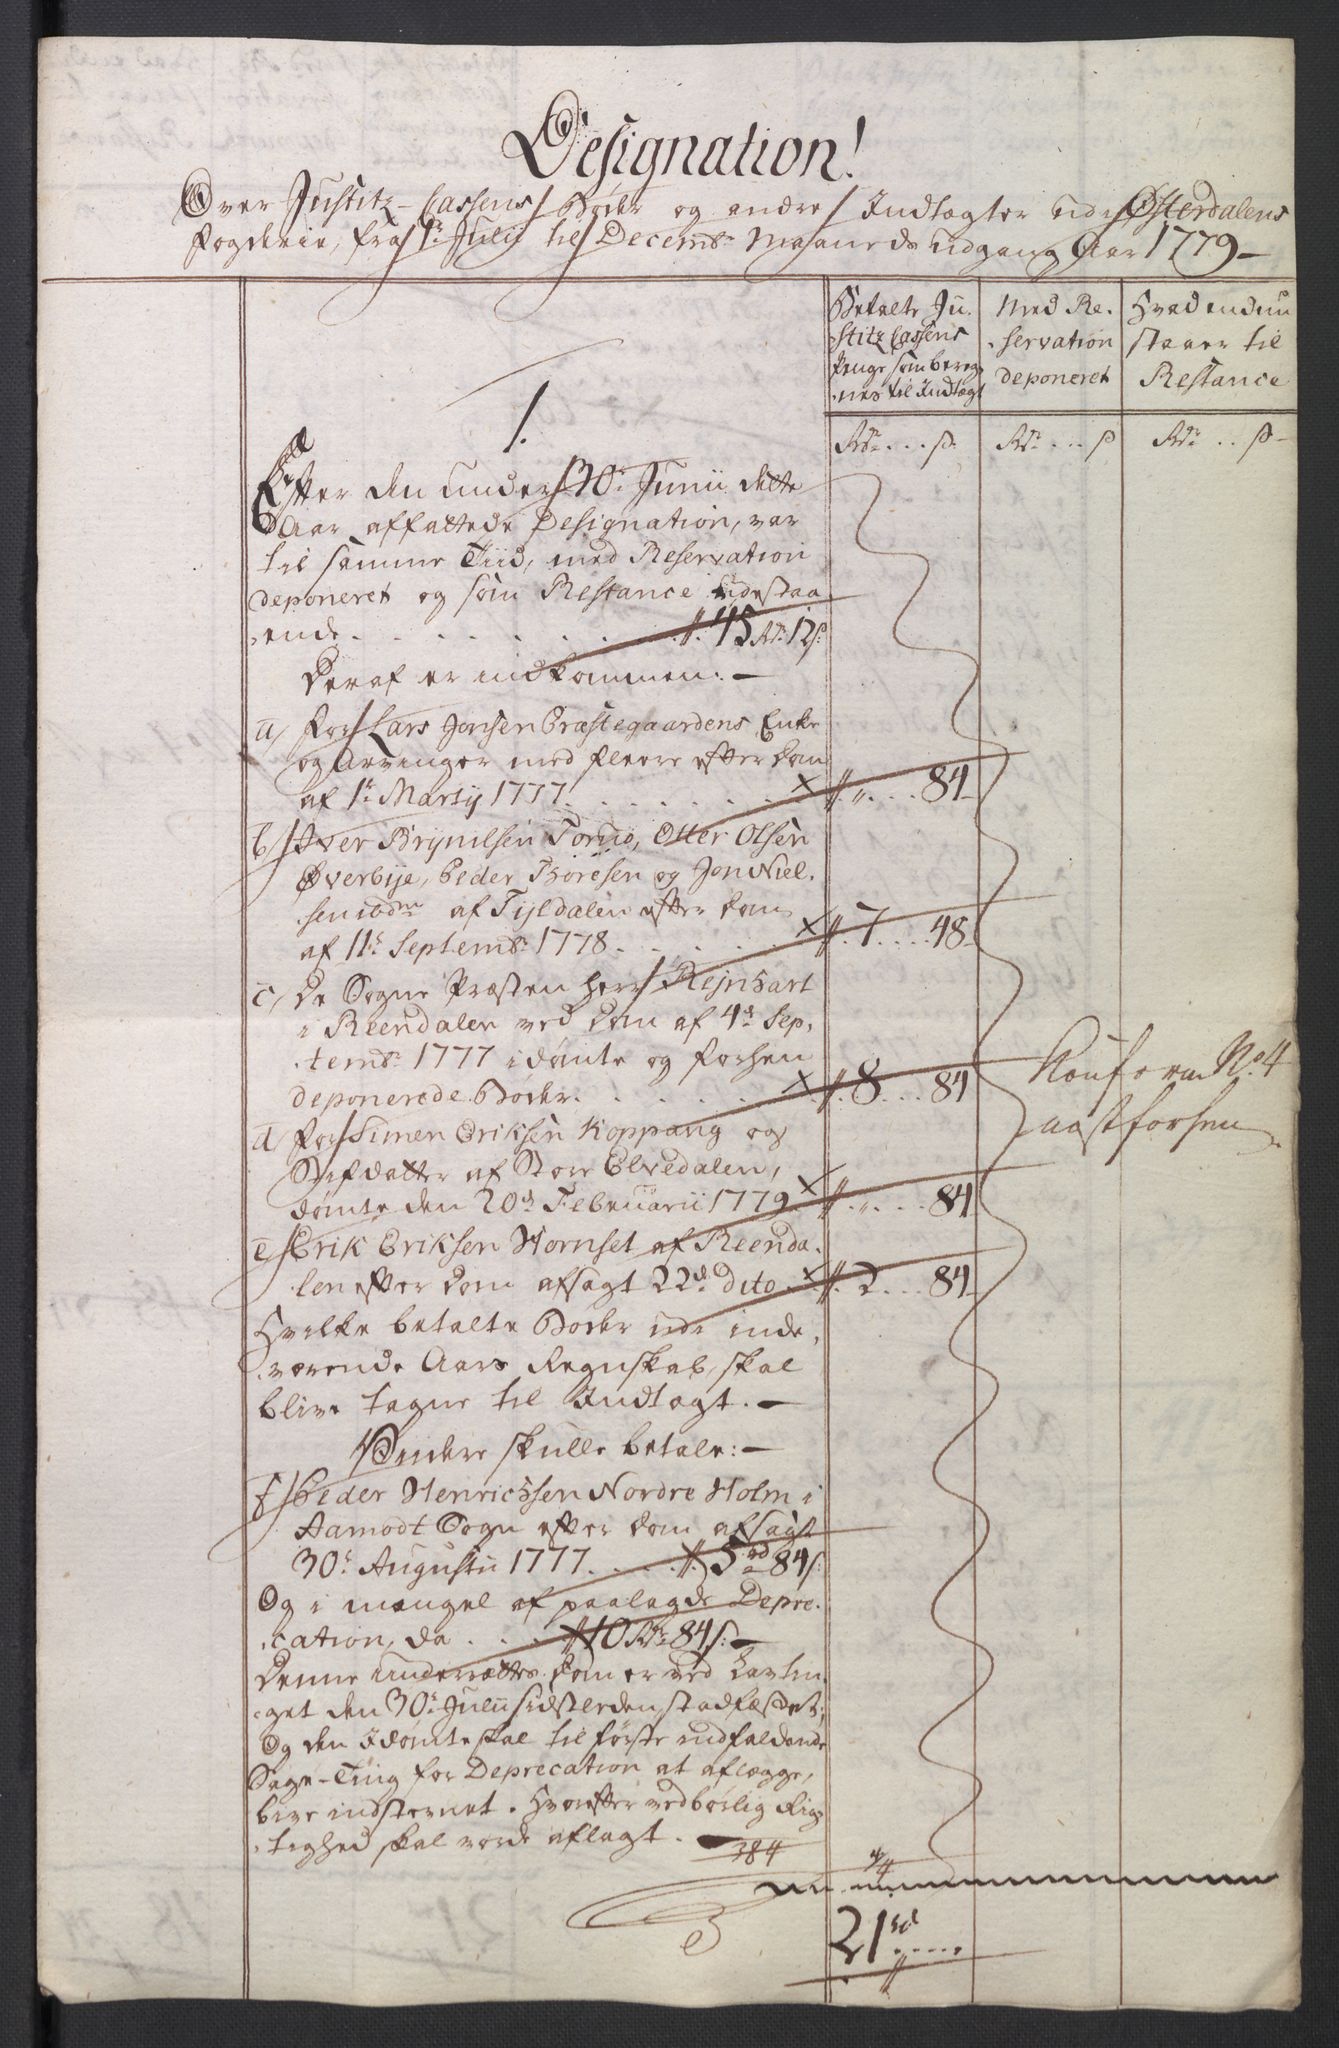 Designation!
Over Justitz-Cassens Bøder og andre Indtægter udi Østerdalens
Fogderie, fra 1te Julij til Decembr Maaneds udgang Aar 1779 —
Betalte Ju-
stitz Cassens
Penge som bereg-
nes til Indtægt
Med Re-
servation
deponeret
Hvad endnu
staaer til
Restance
Rdr ... s.
Rdr ... s
Rdr .. s
1.
Efter den under 30te Junii dette
Aar affattede Designation, var
til samme Tiid, med Reservation
deponeret og som Restance udestaa-
ende . . . . . . . 45 Rdr 12 s.
Deraf er indkommen: —
a, for Lars Jonsen Præstegaardens Enke
og Arvinger med fleere efter Dom
af 1te Martij 1777 . . . . . . „ . . . 84
b, Iver Brynilsen Tornis, Otter Olsen
Øverbye, Peder Thoresen og Jon Niel-
sen ibdm af Tyldalen efter Dom
af 11te Septembr 1778 . . . . . 7 . . . 48
c, De Sogne Præsten Herr Rejnhart
i Reendalen ved Dom af 4de Sep-
tembr 1777 idømte og forhen
deponerede Bøder . . . . . . 8 . . . 84
d, for Simen Eriksen Koppang og
Stifdatter af Store Elvedalen,
dømte den 20de Februarii 1779 „ . . . 84
e, Erik Eriksen Hornset af Reenda-
len efter Dom afsagt 22de dito . . 2 . . . 84
Hvilke betalte Bøder udi inde-
værende Aars Regnskab, skal
blive tagne til Indtægt. —
Konform No. 4
aastforhen
Videre skulle betale: —
f, Peder Henrichsen Nordre Holm i
Aamodt Sogn efter Dom afsagt
30te Augustii 1777 . . . . 5 rd 84 s:
Og i mangel af paalagde Depre-
cation, da . . . 10 Rdr 84 s: —
Denne Underrættes Dom er ved Lavtin-
get den 30te Julii sidstleden stadfæstet;
Og den Idømte skal til første indfaldende
Sage-Ting for Deprecation at aflægge,
blive indstevnet. Hvorefter vedbørlig Rig-
tighed skal vorde aflagt. —
384
4
21 rd . . . . .